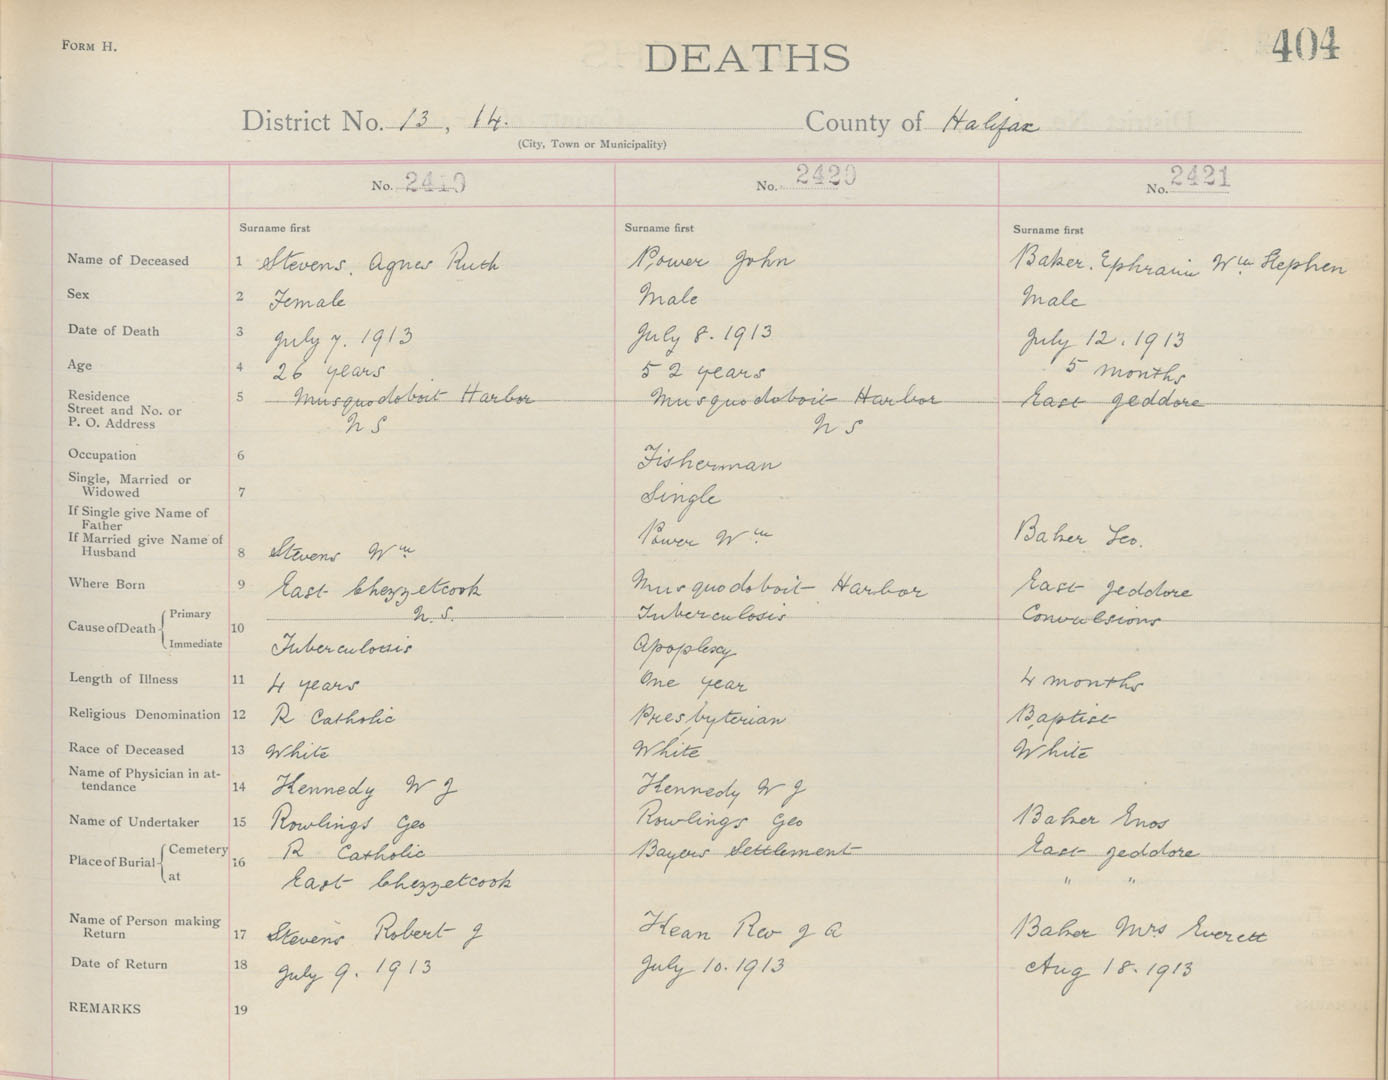 FORM H.
404
DEATHS
District No. 13, 14.
County of Halifax
(City, Town or Municipality)
No. 2419
No. 2420
No. 2421
Surname first
Surname first
Surname first
Name of Deceased 1 Stevens, Agnes Ruth Power John Baker, Ephraim Wm Stephen
Sex 2 Female Male Male
Date of Death 3 July 7. 1913 July 8. 1913 July 12. 1913
Age 4 26 years 52 years 5 months
Residence 5 Musquodoboit Harbor Musquodoboit Harbor East Jeddore
Street and No. or
P. O. Address N S N S
Occupation 6 Fisherman
Single, Married or
Widowed 7 Single
If Single give Name of
Father
If Married give Name of
Husband 8 Stevens Wm Power Wm Baker Leo.
Where Born 9 East Chezzetcook Musquodoboit Harbor East Jeddore
N.S.
Cause of Death 10 Primary Tuberculosis Convulsions
Immediate Tuberculosis Apoplexy
Length of Illness 11 4 years One year 4 months
Religious Denomination 12 R Catholic Presbyterian Baptist
Race of Deceased 13 White White White
Name of Physician in at-
tendance 14 Kennedy W J Kennedy W J
Name of Undertaker 15 Rowlings Geo Rowlings Geo Baker Enos
Place of Burial 16 Cemetery R Catholic Bayers Settlement East Jeddore
at East Chezzetcook " "
Name of Person making
Return 17 Stevens Robert J Kean Rev J A Baker Mrs Everett
Date of Return 18 July 9. 1913 July 10. 1913 Aug 18. 1913
REMARKS 19